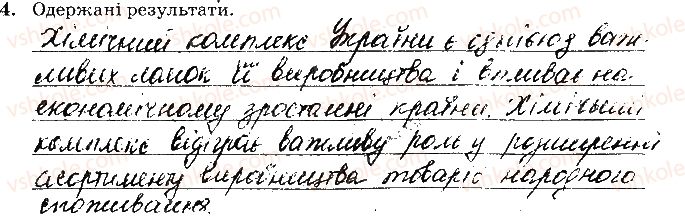 4. Одержані результати.
Хімічний комплекс України є однією з важ-
ливих ланок її виробництва і впливає на
економічному зростанні країни. Хімічний
комплекс відіграє важливу роль у розширенні
асортименту виробництва товарів народного
споживання.